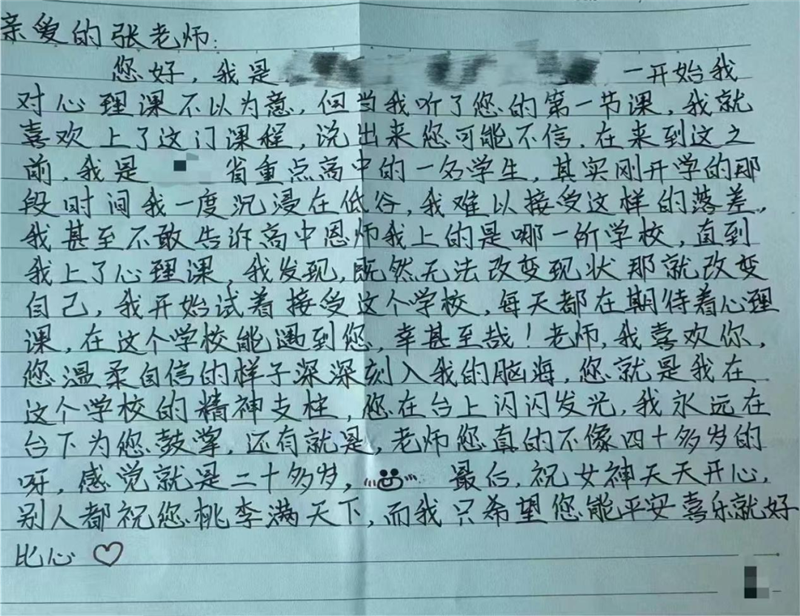 亲爱的张老师:
您好,我是 一开始我
对心理课不以为意,但当我听了您的第一节课,我就
喜欢上了这门课程,说出来您可能不信,在来到这之
前,我是 省重点高中的一名学生,其实刚开学的那
段时间我一度沉浸在低谷,我难以接受这样的落差,
我甚至不敢告诉高中恩师我上的是哪一所学校,直到
我上了心理课,我发现,既然无法改变现状那就改变
自己,我开始试着接受这个学校,每天都在期待着心理
课,在这个学校能遇到您,幸甚至哉!老师,我喜欢你,
您温柔自信的样子深深刻入我的脑海,您就是我在
这个学校的精神支柱,您在台上闪闪发光,我永远在
台下为您鼓掌,还有就是,老师您真的不像四十多岁的
呀,感觉就是二十多岁, 最后,祝女神天天开心,
别人都祝您桃李满天下,而我只希望您能平安喜乐就好
比心♡